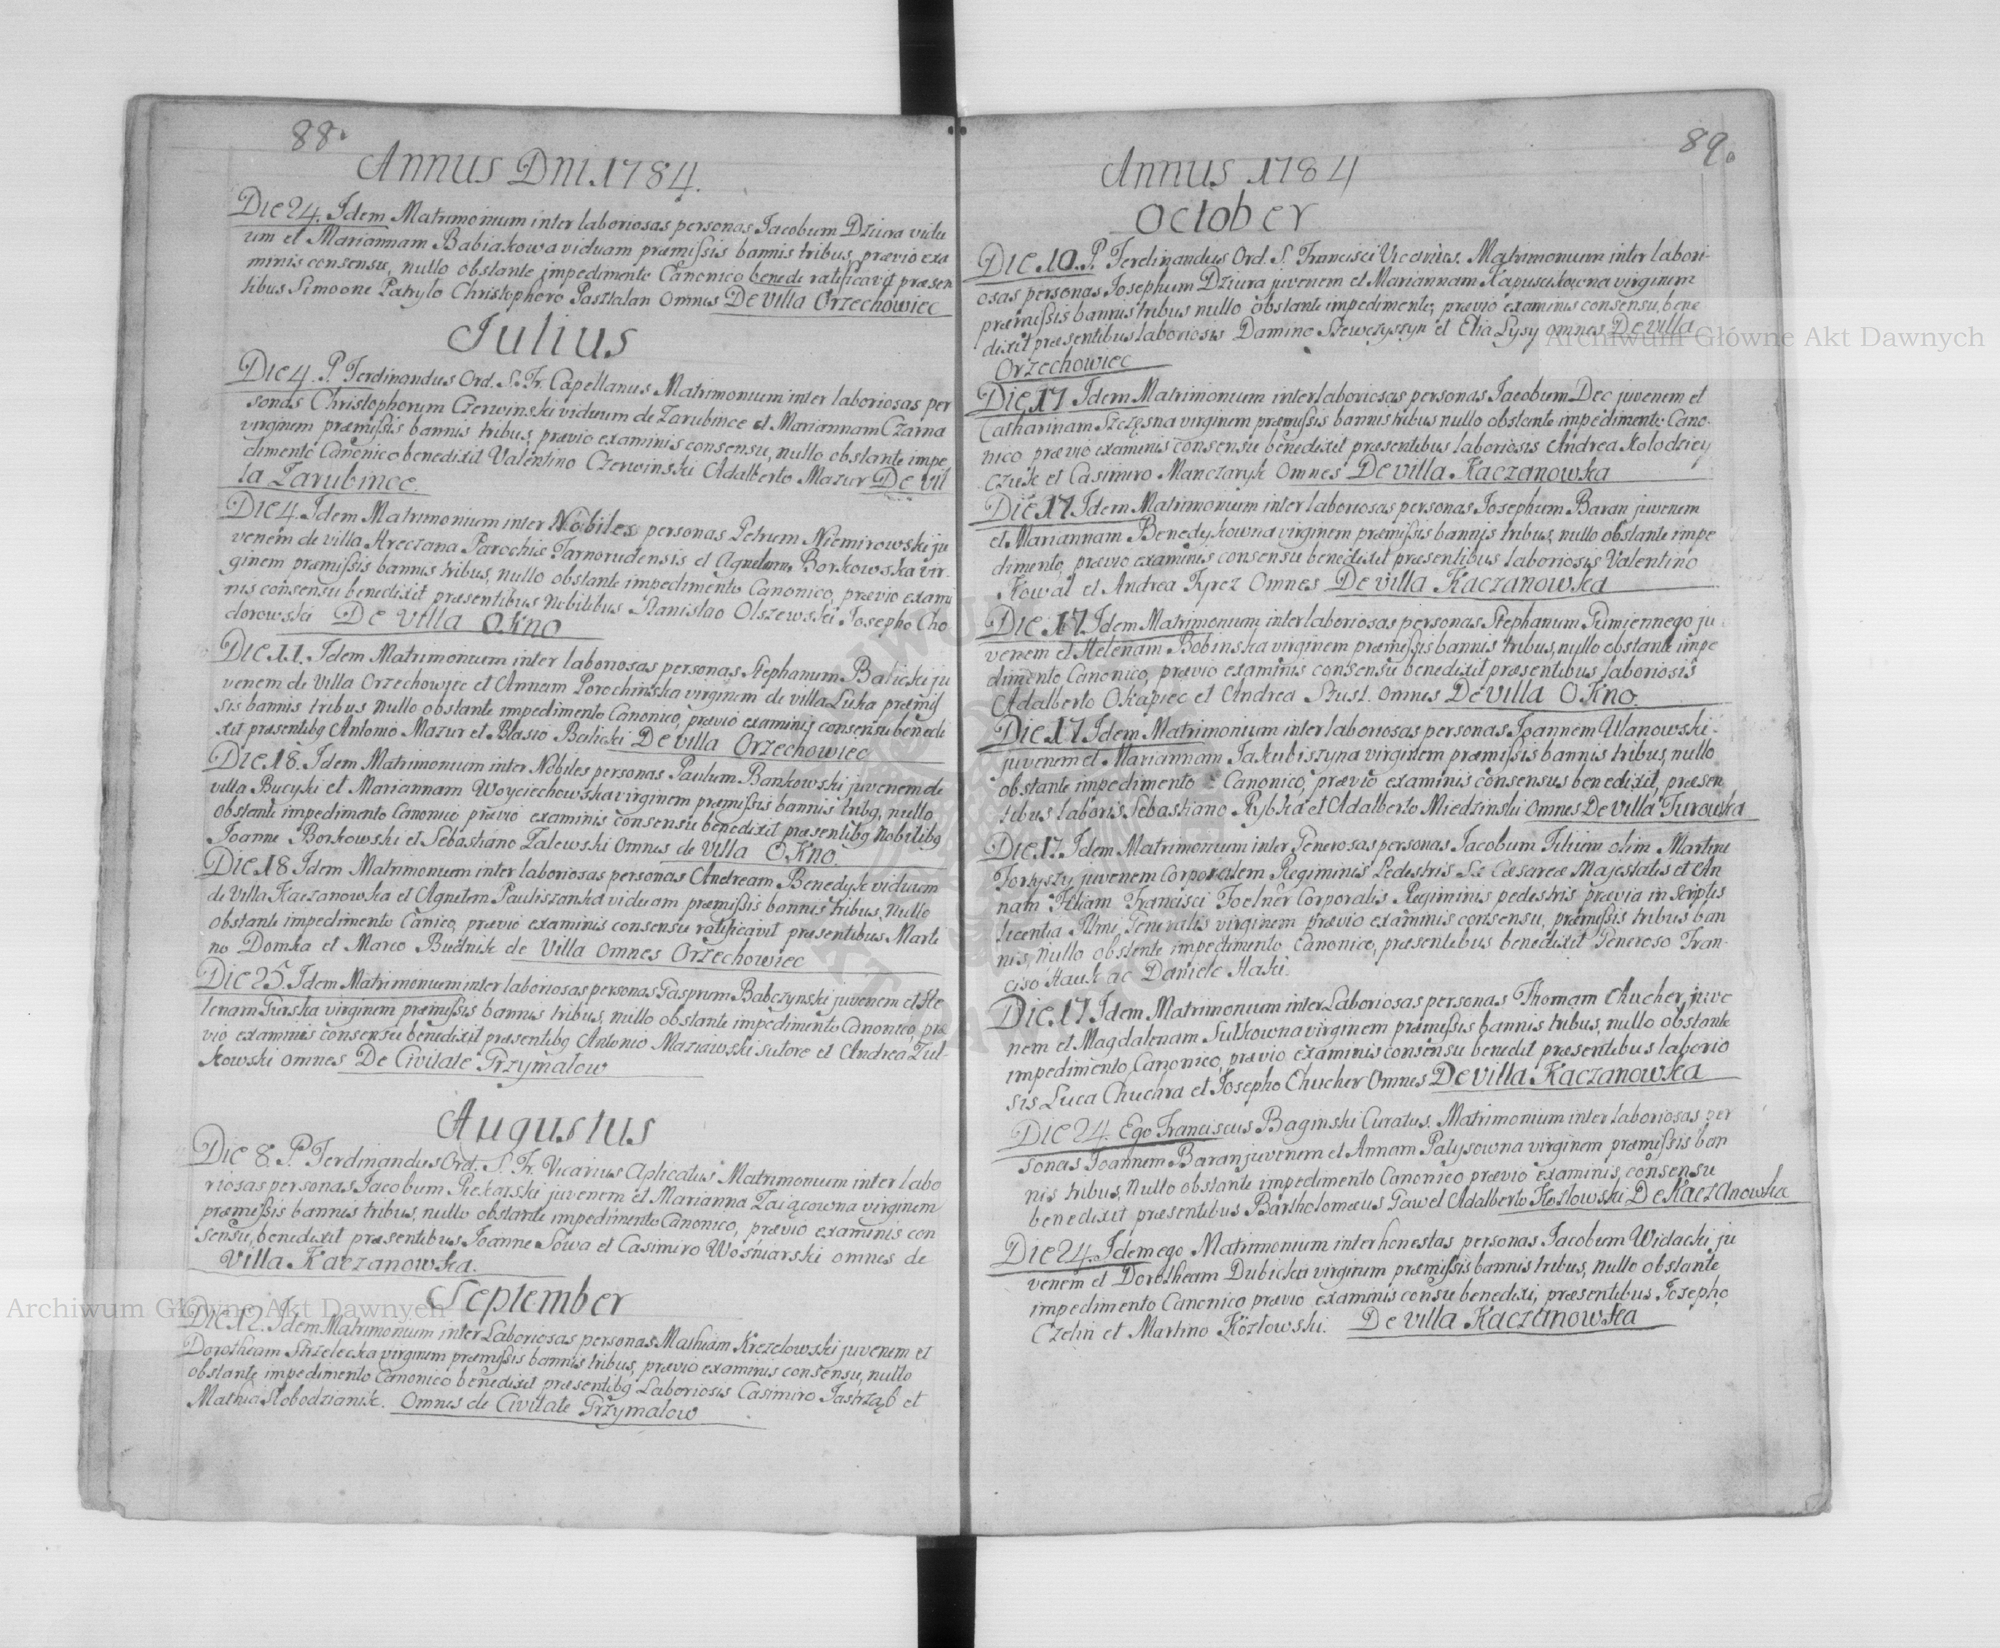 88.
Annus Dni 1784.
Die 24. Idem Matrimonium inter laboriosas personas Iacobum Dziura vidu
um et Mariannam Babiakowa viduam præmissis bannis tribus, prævio exa
minis consensu, nullo obstante impedimento Canonico benede ratificavit præsen
tibus Simoone Patrylo Christophoro Pasztalan Omnes De Villa Orzechowiec
Iulius
Die 4. P. Ferdinandus Ord. S. Fr. Capellanus Matrimonium inter laboriosas per
sonas Christophorum Czerwinski viduum de Zarubince et Mariannam Czarna
virginem præmissis bannis tribus, prævio examinis consensu, nullo obstante impe
dimento Canonico benedixit Valentino Czerwinski Adalberto Mazur De vil
la Zarubince.
Die 4. Idem Matrimonium inter Nobiles personas Petrum Niemirowski ju
venem de villa Areczana Parochiæ Tarnorudensis et Agnetem Borkowska vir-
ginem præmissis bannis tribus, nullo obstante impedimento Canonico, prævio exami
nis consensu benedixit præsentibus Nobilibus Stanislao Olszewski Iosepho Cho
dorowski De Villa Okno
Die 11. Idem Matrimonium inter laboriosas personas Stephanum Balicki ju
venem de Villa Orzechowiec et Annam Porochinska virginem de villa Luka præmis
sis bannis tribus nullo obstante impedimento Canonico, prævio examinis consensu bened
ixit præsentibq Antonio Mazur et Blasio Balicki De villa Orzechowiec
Die 18. Idem Matrimonium inter Nobiles personas Paulum Bankowski juvenem de
villa Bucyki et Mariannam Woyciechowska virginem præmissis bannis tribq, nullo
obstante impedimento Canonico prævio examinis consensu benedixit præsentibq Nobilibq
Ioanne Borkowski et Sebastiano Zalewski Omnes de Villa Okno
Die 18 Idem Matrimonium inter laboriosas personas Andream Benedyk viduum
de Villa Kaczanowka et Agnetem Pauliszanka viduam præmissis bannis tribus, Nullo
obstante impedimento Canico, prævio examinis consensu ratificavit præsentibus Marti
no Domka et Marco Budnik de Villa omnes Orzechowiec
Die 25. Idem Matrimonium inter laboriosas personas Gasprum Babczynski juvenem et He
lenam Gurska virginem præmissis bannis tribus, nullo obstante impedimento Canonico, præ
vio examinis consensu benedixit præsentibq Antonio Maziawski sutore et Andrea Zul-
kowski omnes De Civitate Grzymalow
Augustus
Die 8. P. Ferdinandus Ord. S. Fr. Vicarius Aplicatus Matrimonium inter labo
riosas personas Iacobum Piekarski juvenem et Marianna Zaiącowna virginem
præmissis bannis tribus, nullo obstante impedimento Canonico, prævio examinis con
sensu, benedixit præsentibus Ioanne Sowa et Casimiro Wośniarski omnes de
Villa Kaczanowka.
September
Die 12. Idem Matrimonium inter Laboriosas personas Mathiam Krezelowski juvenem et
Dorotheam Strzelecka virginem præmissis bannis tribus, prævio examinis consensu, nullo
obstante impedimento Canonico benedixit præsentibq Laboriosis Casimiro Jastrząb et
Mathia Slobodzianik. Omnes de Civitate Grzymalow
89.
Annus 1784
October
Die 10. P. Ferdinandus Ord. S. Francisci Vicarius. Matrimonium inter labori-
osas personas Iosephum Dziura juvenem et Mariannam Kapuscikowna virginem
præmissis bannis tribus nullo obstante impedimento; prævio examinis consensu, bene
dixit præsentibus laboriosis Damino Szewczyszyn et Elia Lysy omnes De villa
Orzechowiec
Die 17 Idem Matrimonium inter laboriosas personas Iacobum Dec juvenem et
Catharinam Szczęsna virginem præmissis bannis tribus nullo obstante impedimento Cano-
nico prævio examinis consensu benedixit præsentibus laboriosis Andrea Kolodziey
czuk et Casimiro Manczaryk Omnes De Villa Kaczanowka
Die 17 Idem Matrimonium inter laboriosas personas Iosephum Baran juvenem
et Mariannam Benedykowna virginem præmissis bannis tribus, nullo obstante impe
dimento, prævio examinis consensu benedixit præsentibus laboriosis Valentino
Kowal et Andrea Kyrez Omnes De villa Kaczanowka
Die 17 Idem Matrimonium inter laboriosas personas Stephanum Gumiennego ju
venem et Helenam Bobinska virginem præmissis bannis tribus, nullo obstante impe
dimento Canonico, prævio examinis consensu benedixit præsentibus laboriosis
Adalberto Okapiec et Andrea Szust. Omnes De villa Okno.
Die 17 Idem Matrimonium inter laboriosas personas Ioannem Ulanowski
juvenem et Mariannam Jakubiszyna virginem præmissis bannis tribus, nullo
obstante impedimento Canonico, prævio examinis consensus benedixit, præsen
tibus laboris Sebastiano Rybka et Adalberto Miedzinski omnes De Villa Turowka
Die 17. Idem Matrimonium inter Generosas personas Iacobum Filium olim Martini
Fortyszy juvenem Corporalem Regiminis Pedestris Sæ Cæsareæ Majestatis et An
nam Filiam Francisci Foelner Corporalis Regiminis pedestris prævia in scriptis
licentia Illmi Generalis virginem prævio examinis consensu, præmissis tribus ban
nis, Nullo obstante impedimento Canonico, præsentibus benedixit Generoso Fran-
cisco Hauk ac Daniele Haki.
Die 17 Idem Matrimonium inter Laboriosas personas Thomam Chucher, juve
nem et Magdalenam Sulkowna virginem præmissis bannis tribus, nullo obstante
impedimento Canonico, prævio examinis consensu benedit præsentibus laborio
sis Luca Chuchra et Iosepho Chucher Omnes De villa Kaczanowka
Die 24. Ego Franciscus Baginski Curatus. Matrimonium inter laboriosas per
sonas Ioannem Baran juvenem et Annam Palysowna virginem præmissis ban
nis tribus, Nullo obstante impedimento Canonico prævio examinis, consensu
benedixit præsentibus Bartholomæus Gaw et Adalberto Kozlowski De Kaczanowka
Die 24. Idem ego Matrimonium inter honestas personas Iacobum Widacki ju
venem et Dorotheam Dubicka virginem præmissis bannis tribus, Nullo obstante
impedimento Canonico prævio examinis consu benedixi, præsentibus Iosepho
Czelin et Martino Kozlowski. De villa Kaczanowka
Archiwum Główne Akt Dawnych
Archiwum Główne Akt Dawnych